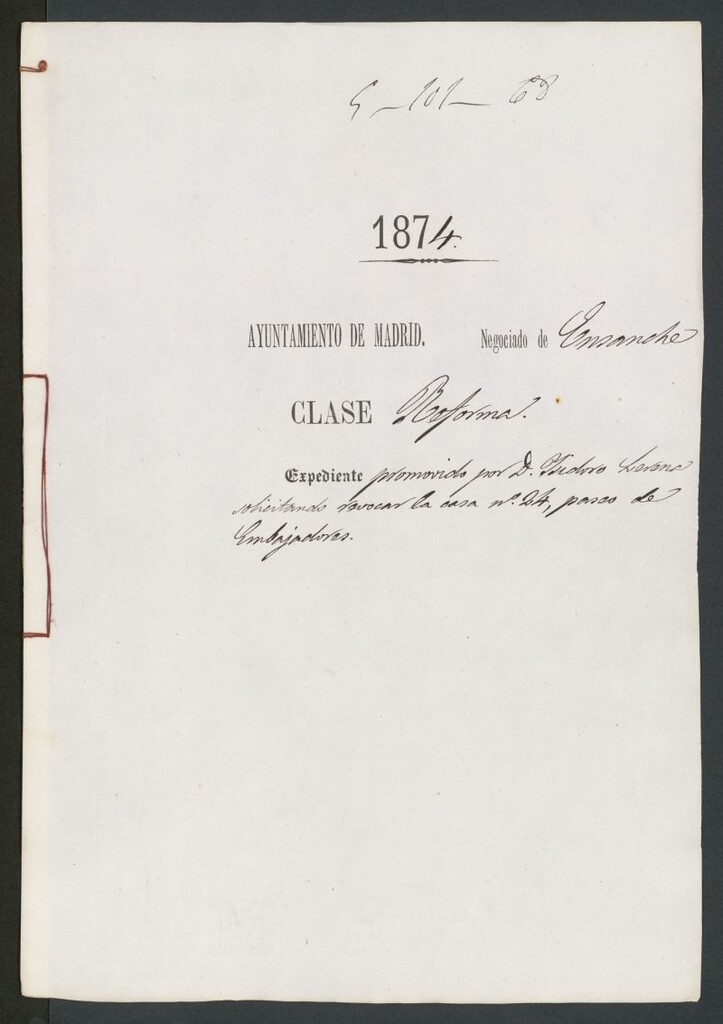 5-101-68
1874.
AYUNTAMIENTO DE MADRID. Negociado de Ensanche
CLASE Reforma.
Expediente promovido por D. Isidoro Lerena
solicitando revocar la casa nº. 24, paseo de
Embajadores.